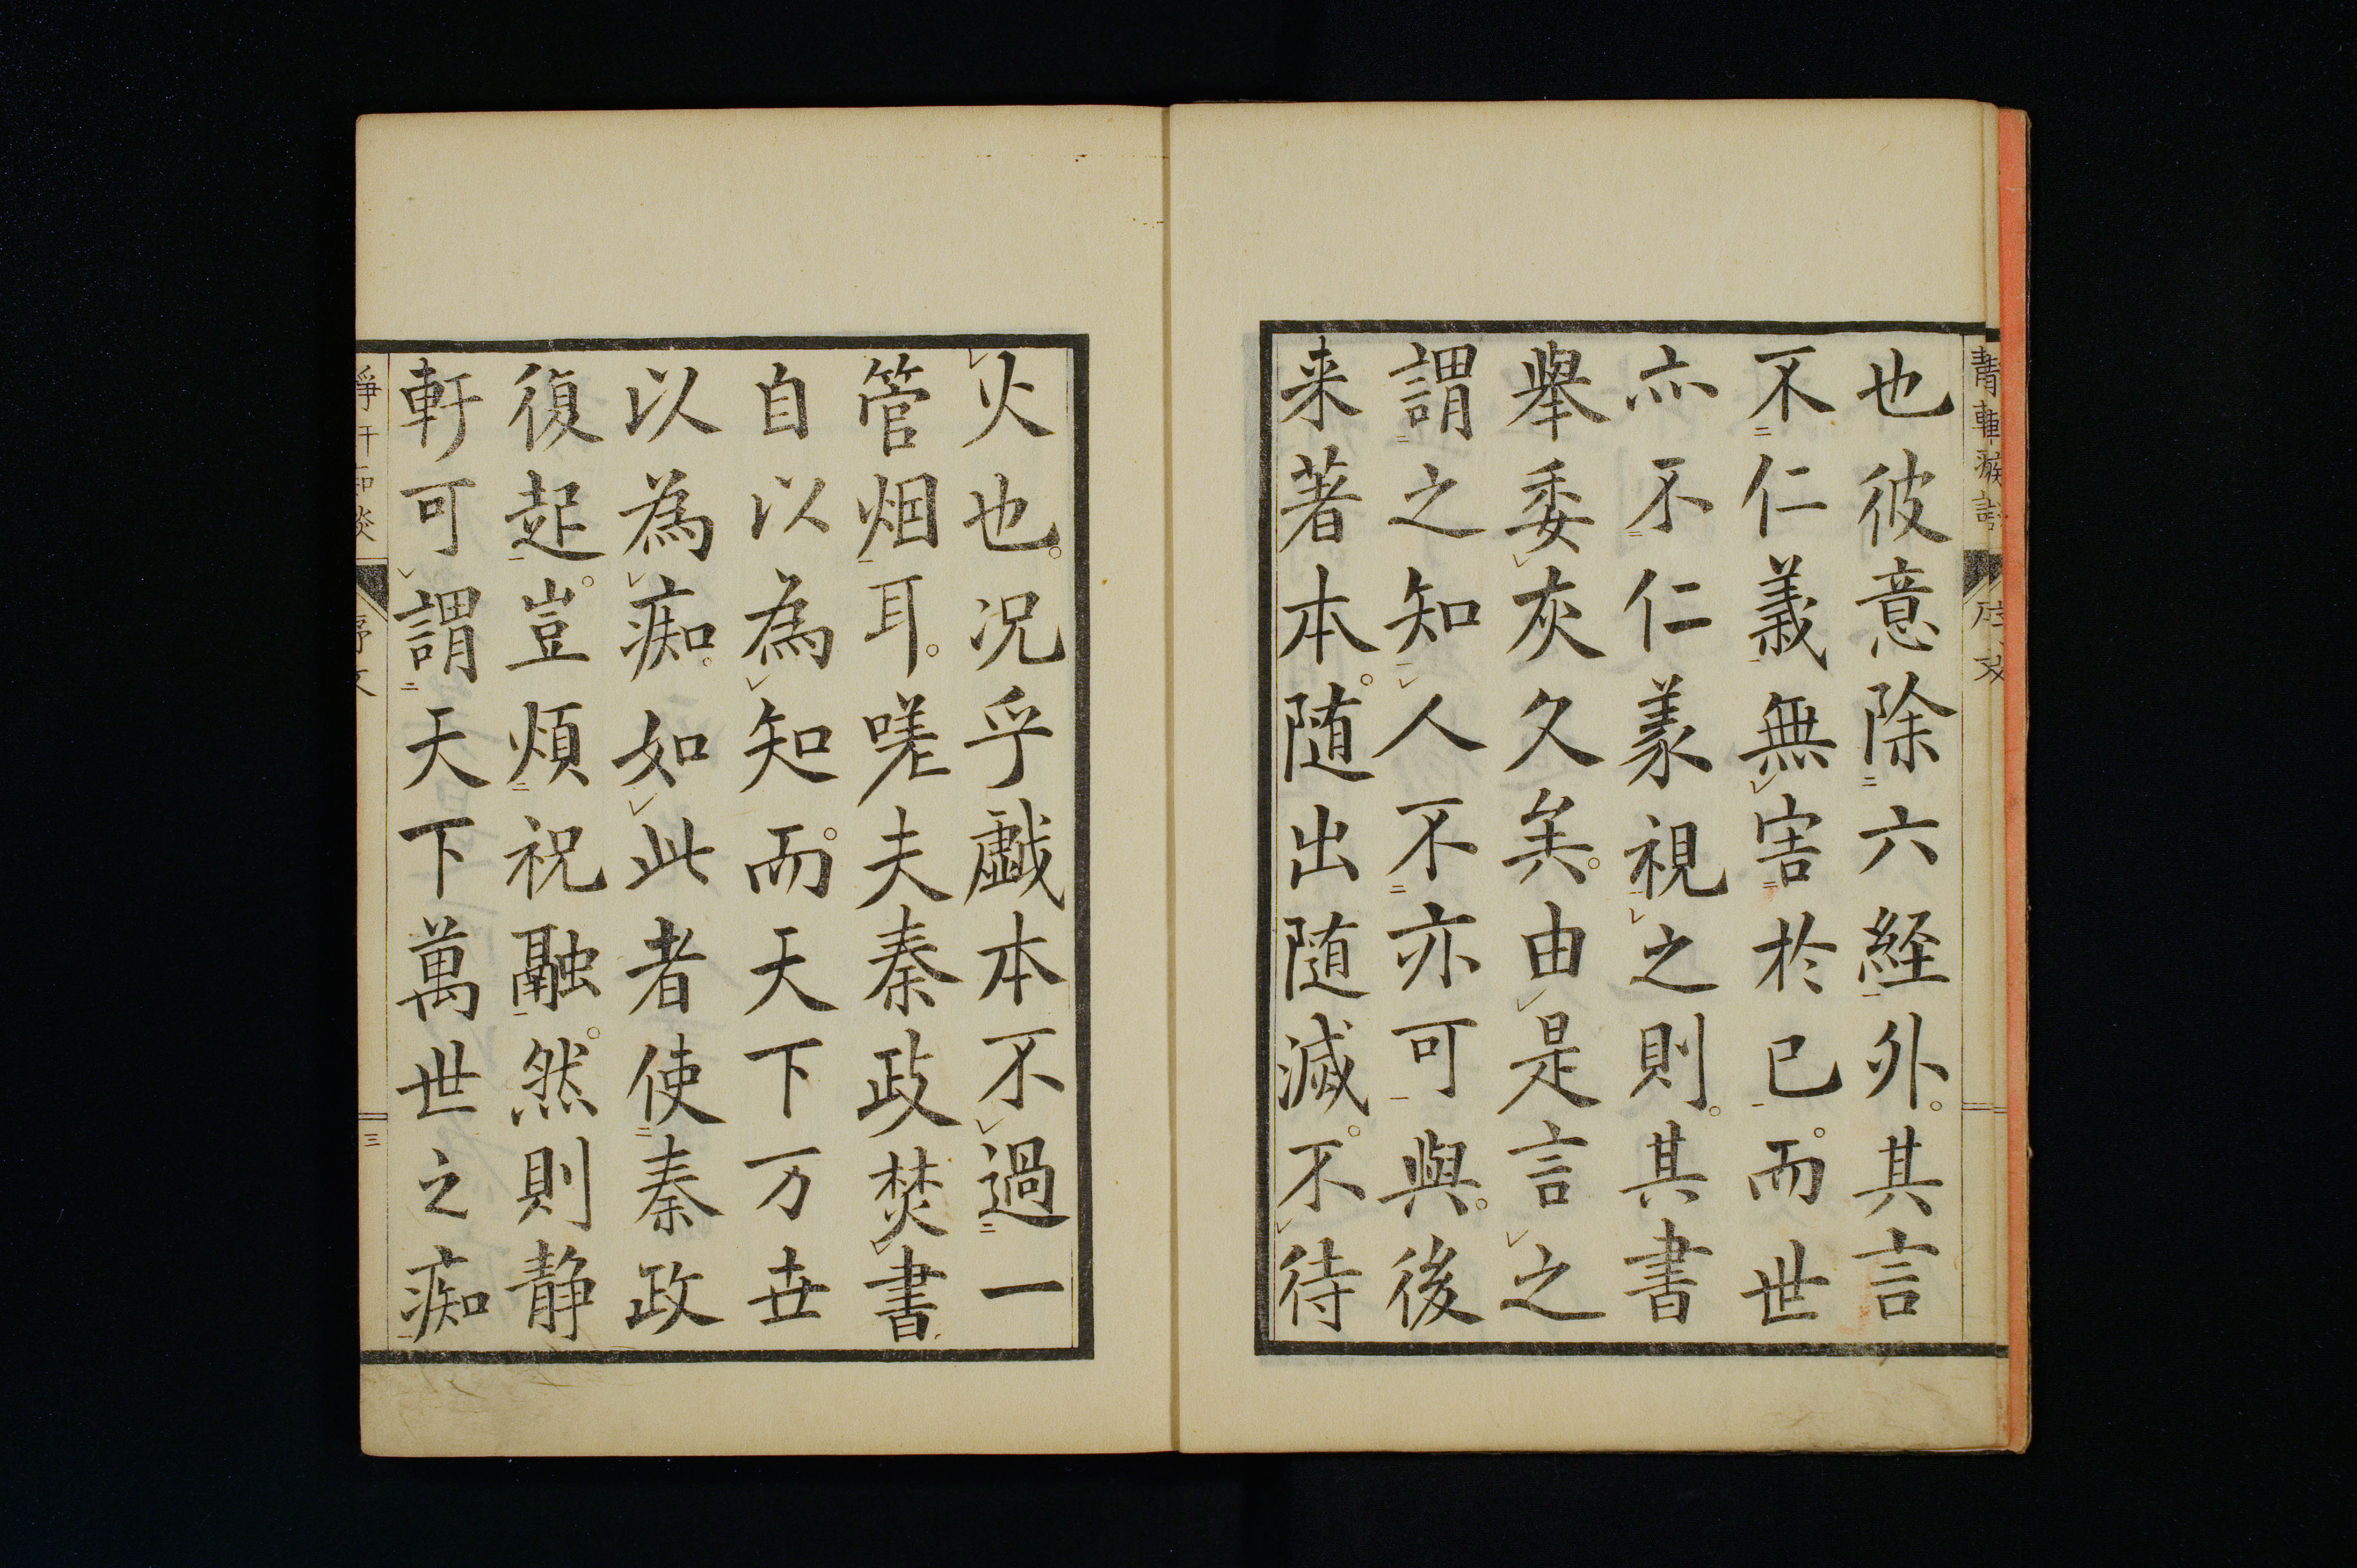 也彼意除六経外其言
不仁義無害於已而世
亦不仁義視之則其書
舉委灰久矣由是言之
謂之知人不亦可與後
来著本随出随滅不待
火也况乎戯本不過一
管烟耳嗟夫秦政焚書
自以為知而天下万世
以為痴如此者使秦政
復起豈煩祝融然則静
軒可謂天下萬世之痴
三